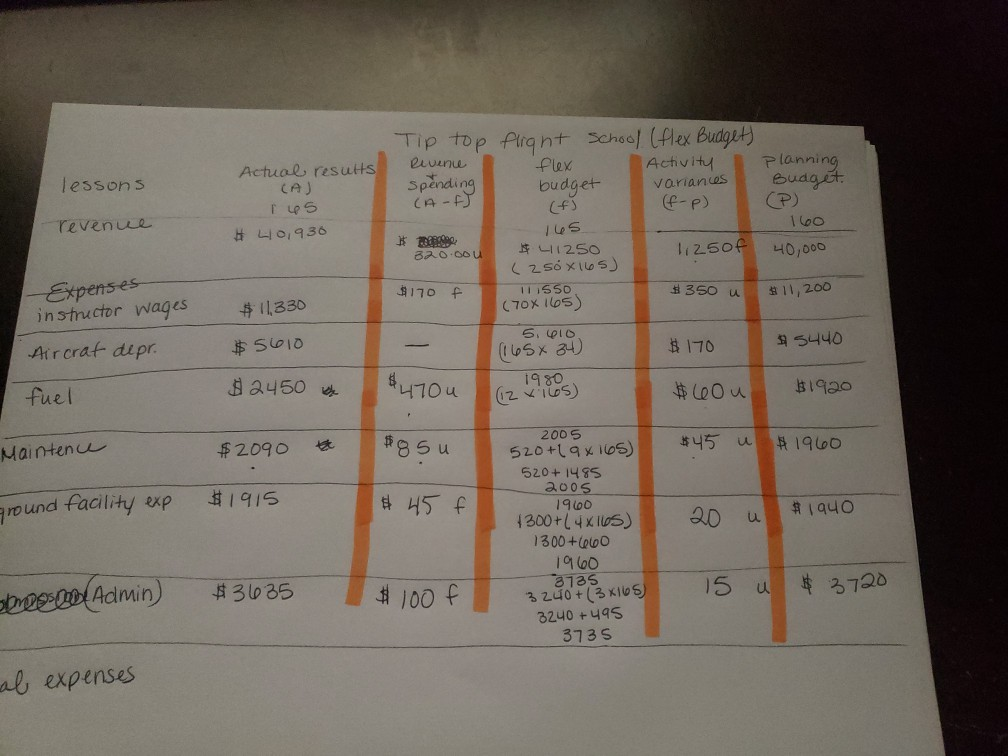 Tip top flight School (flex Budget)
lessons
Actual results
(A)
165
Revenue
+
Spending
(A-f)
flex
budget
(f)
165
Activity
variances
(f-p)
Planning
Budget.
(P)
160
revenue
$ 40,930
$
320.00u
$ 41250
(250x165)
1,250f
40,000
Expenses
instructor wages
$11,330
$170 f
11,550
(70x165)
$350 u
$11,200
Aircraf depr.
$5610
—
5,610
(165x 34)
$170
$5440
fuel
$2450
$470u
1980
(12 x165)
$60u
$1920
Maintence
$2090
$85 u
2005
520+(9x165)
520+1485
2005
$45 u
$1960
ground facility exp
$1915
$ 45 f
1960
1300+(4x165)
1300+660
1960
20 u
$1940
(Admin)
$3635
$ 100 f
3735
3240+(3x165)
3240+495
3735
15 u
$ 3720
al expenses